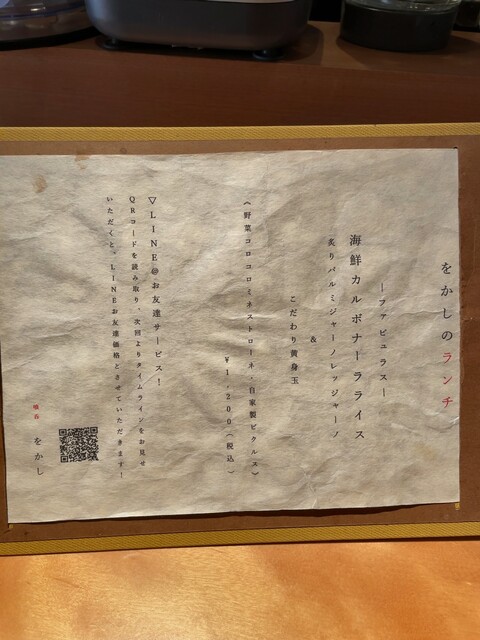 をかしのランチ
―ファビュラス―
海鮮カルボナーラライス
炙りパルミジャーノレッジャーノ
&
こだわり黄身玉
《野菜コロコロミネストローネ/自家製ピクルス》
¥1,200(税込)
▽LINE@お友達サービス!
QRコードを読み取り、次回よりタイムラインをお見せ
いただくと。LINEお友達価格とさせていただきます!
をかし